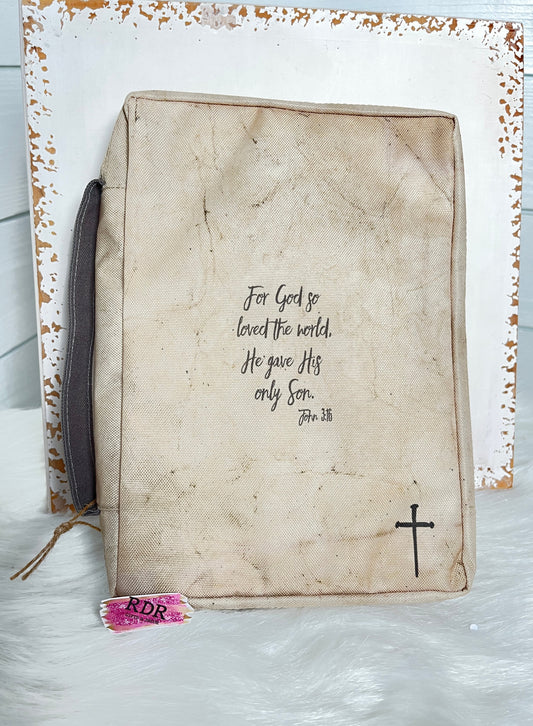 For God so
loved the world,
He gave His
only Son.
John 3:16
RDR